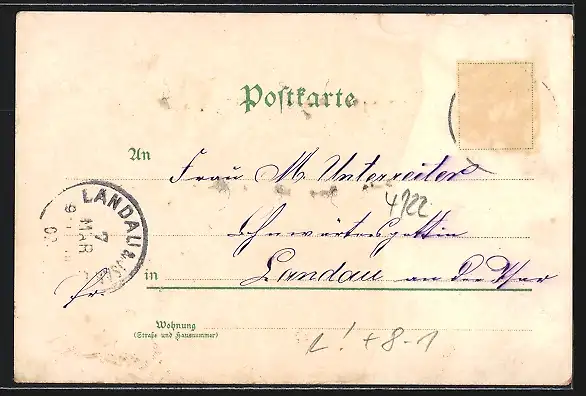 Postkarte
An Frau M. Unterreiter
4722
in Landau an der Isar
LANDAU a. ISAR
7 MAR
Wohnung
(Straße und Hausnummer)
1! + 8-1